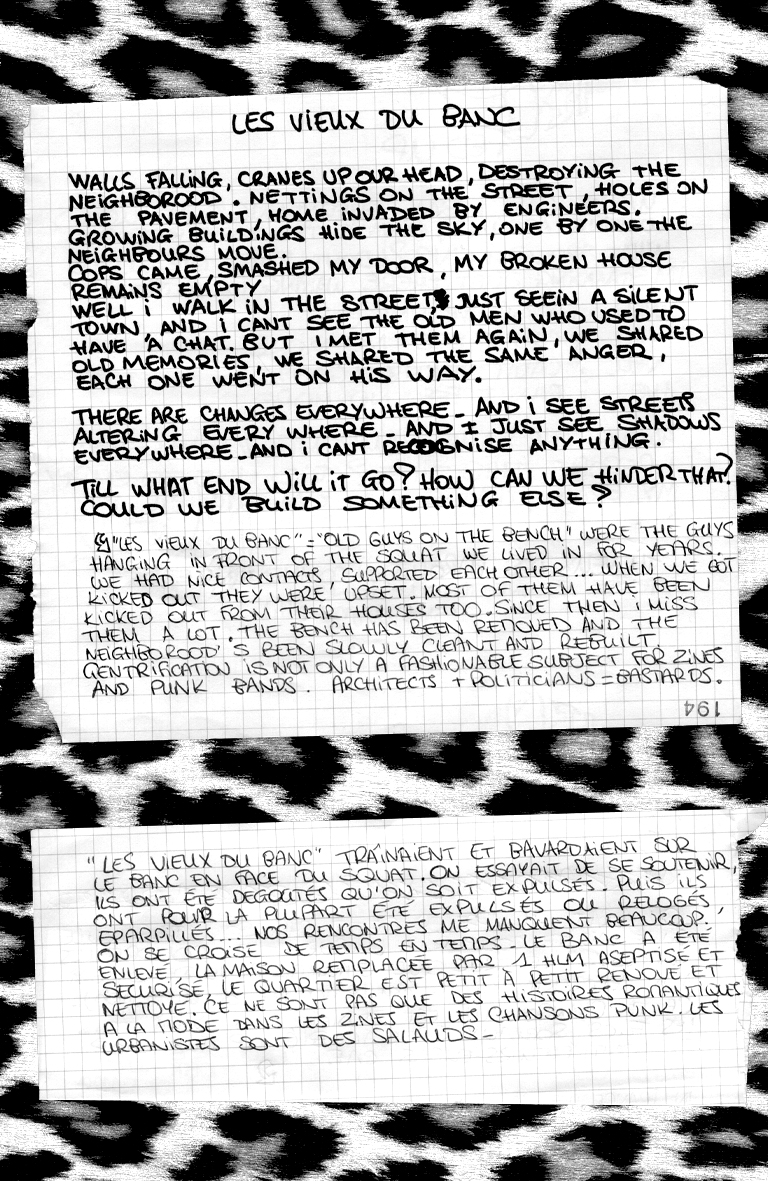 LES VIEUX DU BANC
WALLS FALLING, CRANES UP OUR HEAD, DESTROYING THE
NEIGHBOROOD. NETTINGS ON THE STREET, HOLES ON
THE PAVEMENT, HOME INVADED BY ENGINEERS.
GROWING BUILDINGS HIDE THE SKY, ONE BY ONE THE
NEIGHBOURS MOVE.
COPS CAME, SMASHED MY DOOR, MY BROKEN HOUSE
REMAINS EMPTY
WELL I WALK IN THE STREET, JUST SEEIN A SILENT
TOWN, AND I CANT SEE THE OLD MEN WHO USED TO
HAVE A CHAT. BUT I MET THEM AGAIN, WE SHARED
OLD MEMORIES, WE SHARED THE SAME ANGER,
EACH ONE WENT ON HIS WAY.
THERE ARE CHANGES EVERYWHERE_ AND I SEE STREETS
ALTERING EVERY WHERE_ AND I JUST SEE SHADOWS
EVERYWHERE_ AND I CANT RECOGNISE ANYTHING.
TILL WHAT END WILL IT GO? HOW CAN WE HINDER THAT?
COULD WE BUILD SOMETHING ELSE?
"LES VIEUX DU BANC" = "OLD GUYS ON THE BENCH" WERE THE GUYS
HANGING IN FRONT OF THE SQUAT WE LIVED IN FOR YEARS.
WE HAD NICE CONTACTS, SUPPORTED EACH OTHER... WHEN WE GOT
KICKED OUT THEY WERE UPSET. MOST OF THEM HAVE BEEN
KICKED OUT FROM THEIR HOUSES TOO. SINCE THEN I MISS
THEM A LOT. THE BENCH HAS BEEN REMOVED AND THE
NEIGHBOROOD'S BEEN SLOWLY CLEANT AND REBUILT
GENTRIFICATION IS NOT ONLY A FASHIONABLE SUBJECT FOR ZINES
AND PUNK BANDS. ARCHITECTS + POLITICIANS = BASTARDS.
194
"LES VIEUX DU BANC" TRAÎNAIENT ET BAVARDAIENT SUR
LE BANC EN FACE DU SQUAT. ON ESSAYAIT DE SE SOUTENIR,
ILS ONT ÉTÉ DEGOUTÉS QU'ON SOIT EXPULSÉS. PUIS ILS
ONT POUR LA PLUPART ÉTÉ EXPULSÉS OU RELOGÉS,
ÉPARPILLÉS... NOS RENCONTRES ME MANQUENT BEAUCOUP.
ON SE CROISE DE TEMPS EN TEMPS. LE BANC A ÉTÉ
ENLEVÉ, LA MAISON REMPLACÉE PAR 1 HLM ASEPTISÉ ET
SECURISÉ, LE QUARTIER EST PETIT À PETIT RENOVÉ ET
NETTOYÉ. CE NE SONT PAS QUE DES HISTOIRES ROMANTIQUES
A LA MODE DANS LES ZINES ET LES CHANSONS PUNK. LES
URBANISTES SONT DES SALAUDS_